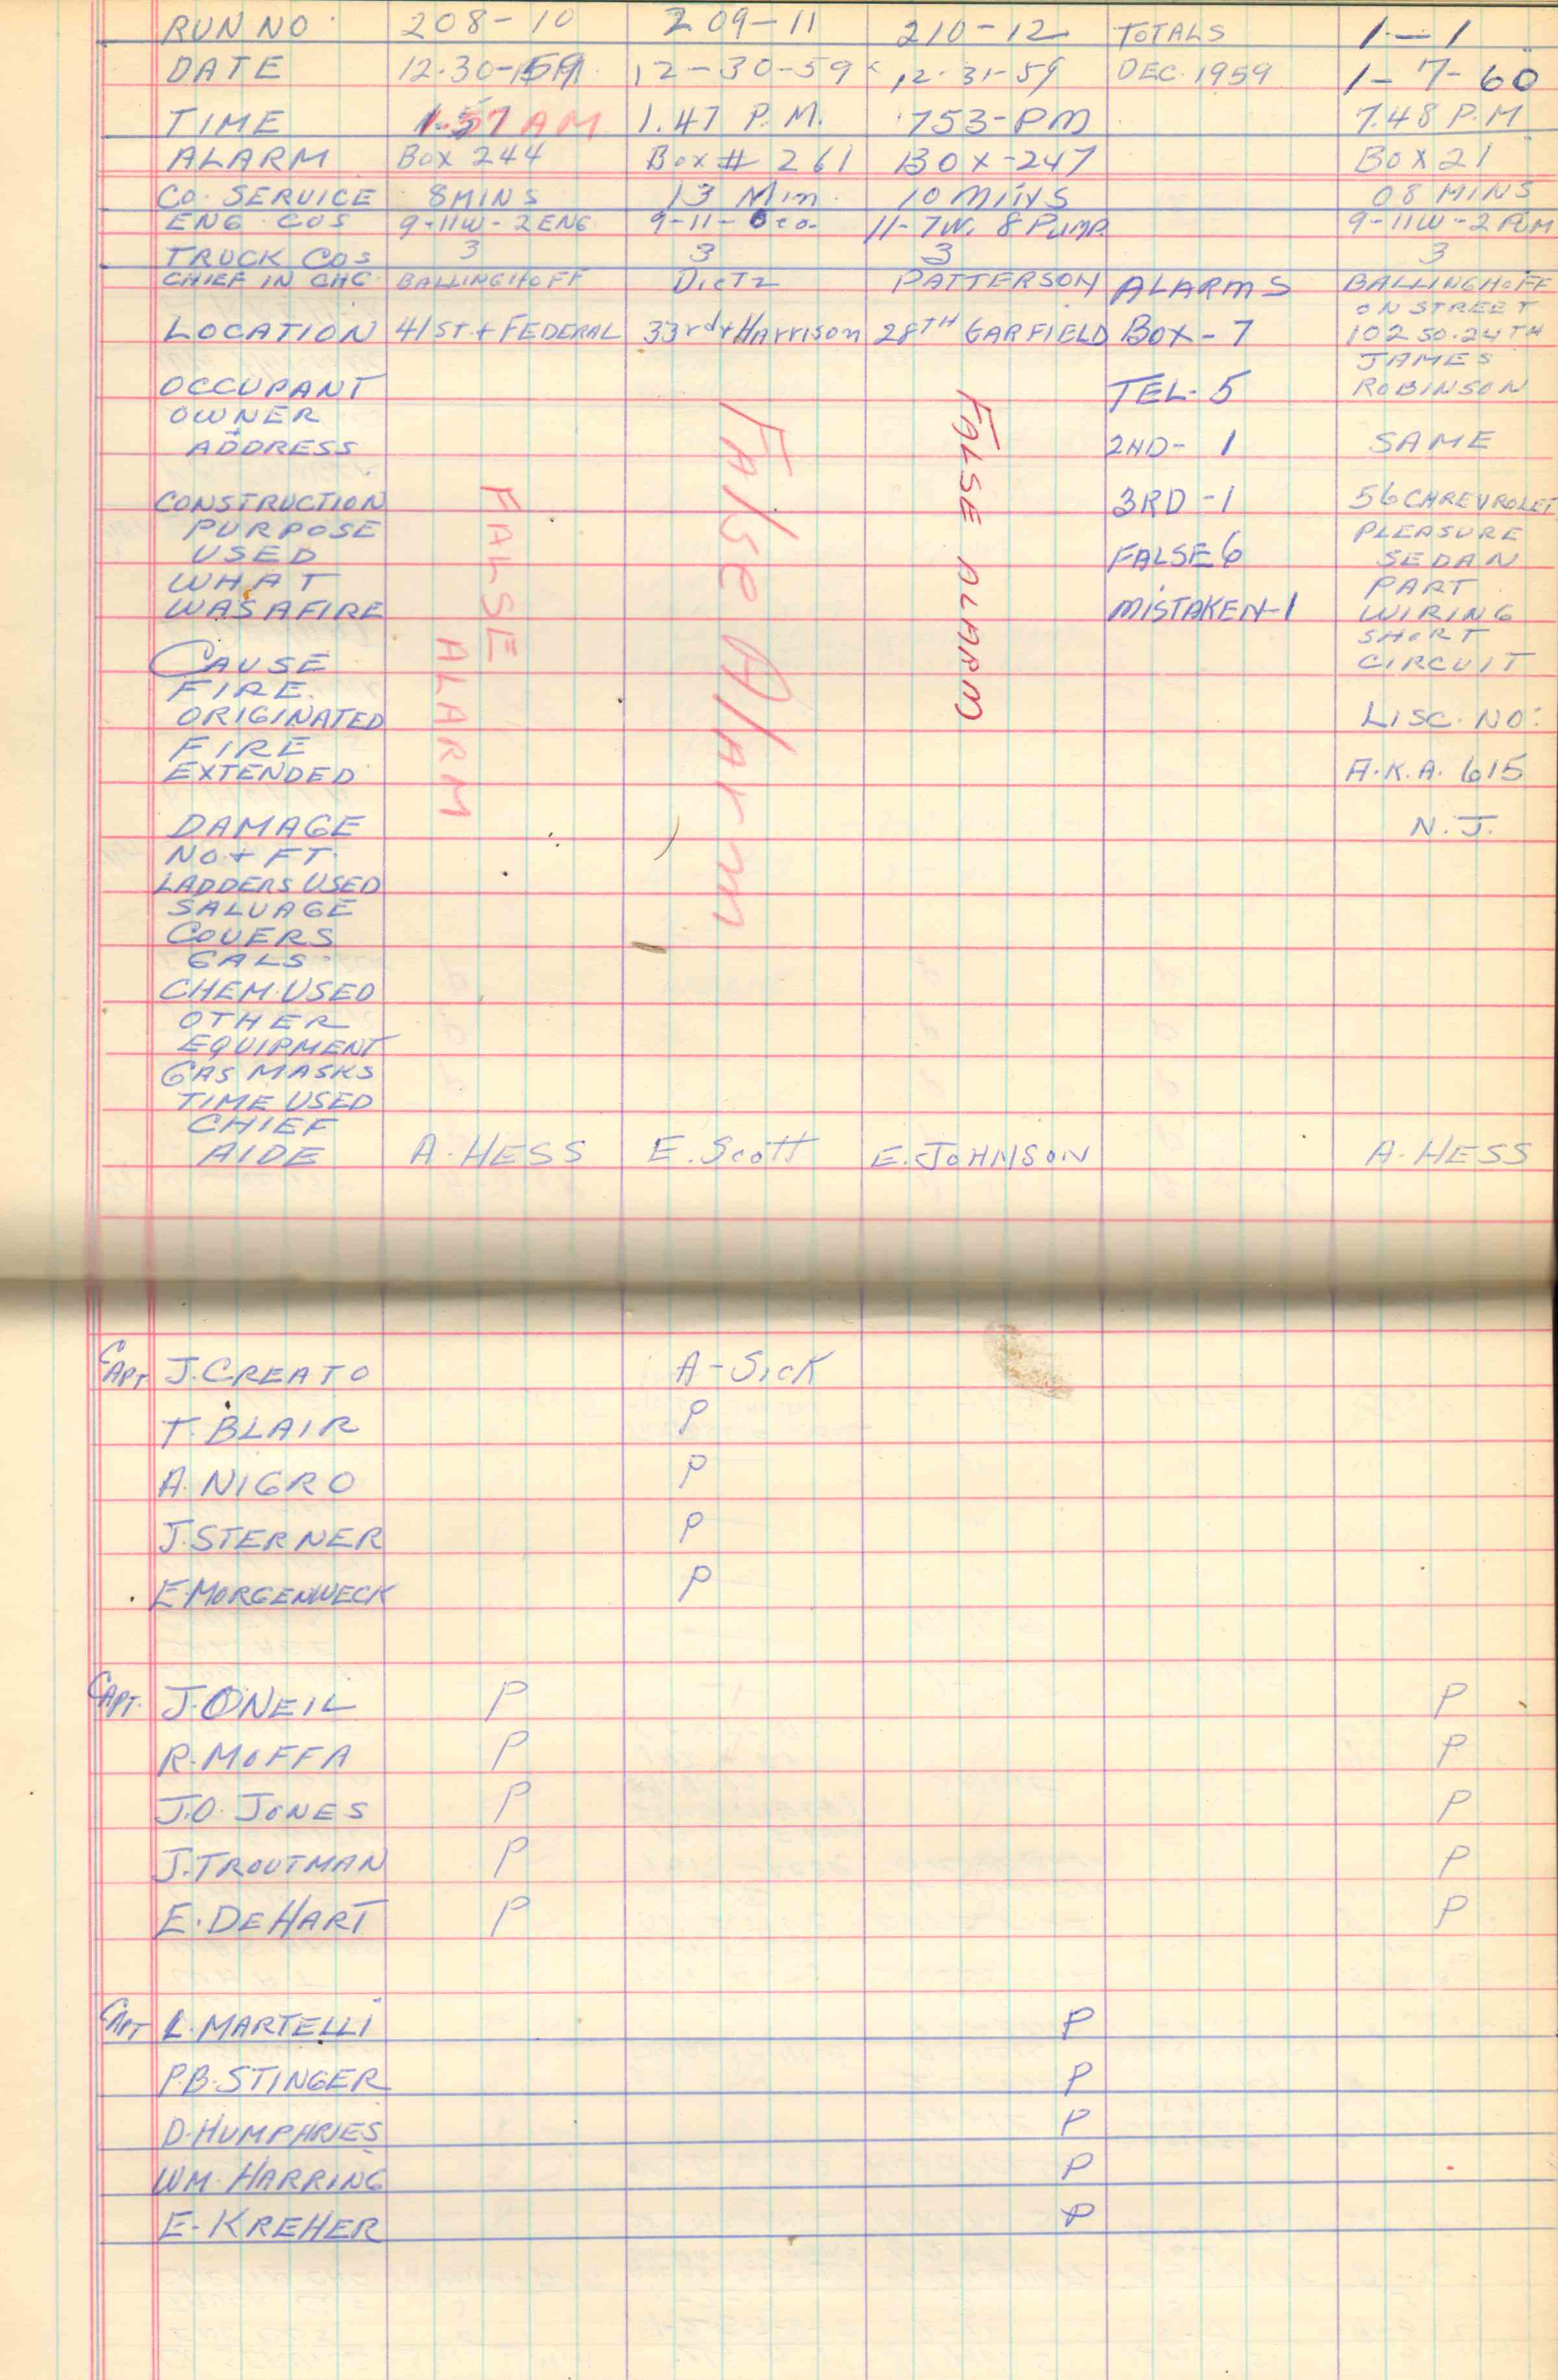 RUN NO. 208-10 209-11 210-12 TOTALS 1-1
DATE 12-30-59 12-30-59 12-31-59 DEC. 1959 1-7-60
TIME 1.57 AM 1.47 P.M. 753-PM 7.48 P.M
ALARM BOX 244 Box # 261 BOX-247 BOX 21
CO. SERVICE 8 MINS 13 Min. 10 MINS 08 MINS
ENG COS 9-11W-2 ENG 9-11- 11-7W. 8 PUMP. 9-11W-2
TRUCK COS 3 3 3 3
CHIEF IN CHG. BALLINGHOFF DIETZ PATTERSON ALARMS BALLINGHOFF
ON STREET
LOCATION 41ST + FEDERAL 33rd + Harrison 28TH GARFIELD BOX-7 102 SO. 24TH
JAMES
OCCUPANT TEL-5 ROBINSON
OWNER
ADDRESS 2ND-1 SAME
CONSTRUCTION 3RD-1 56 CHREVROLET
PURPOSE PLEASURE
USED FALSE 6 SEDAN
WHAT PART
WAS AFIRE MISTAKEN-1 WIRING
SHORT
CAUSE CIRCUIT
FIRE
ORIGINATED LISC. NO:
FIRE
EXTENDED A.K.A. 615
DAMAGE N.J.
NO + FT.
LADDERS USED
SALVAGE
COVERS
GALS.
CHEM. USED
OTHER
EQUIPMENT
GAS MASKS
TIME USED
CHIEF
AIDE A. HESS E. Scott E. JOHNSON A. HESS
FALSE
ALARM
False Alarm
FALSE ALARM
CAPT J. CREATO A-SICK
T. BLAIR P
A. NIGRO P
J. STERNER P
E. MORGENWECK P
CAPT. J. ONEIL P P
R. MOFFA P P
J.O. JONES P P
J. TROUTMAN P P
E. DEHART P P
CAPT L. MARTELLI P
P.B. STINGER P
D. HUMPHRIES P
WM. HARRING P
E. KREHER P